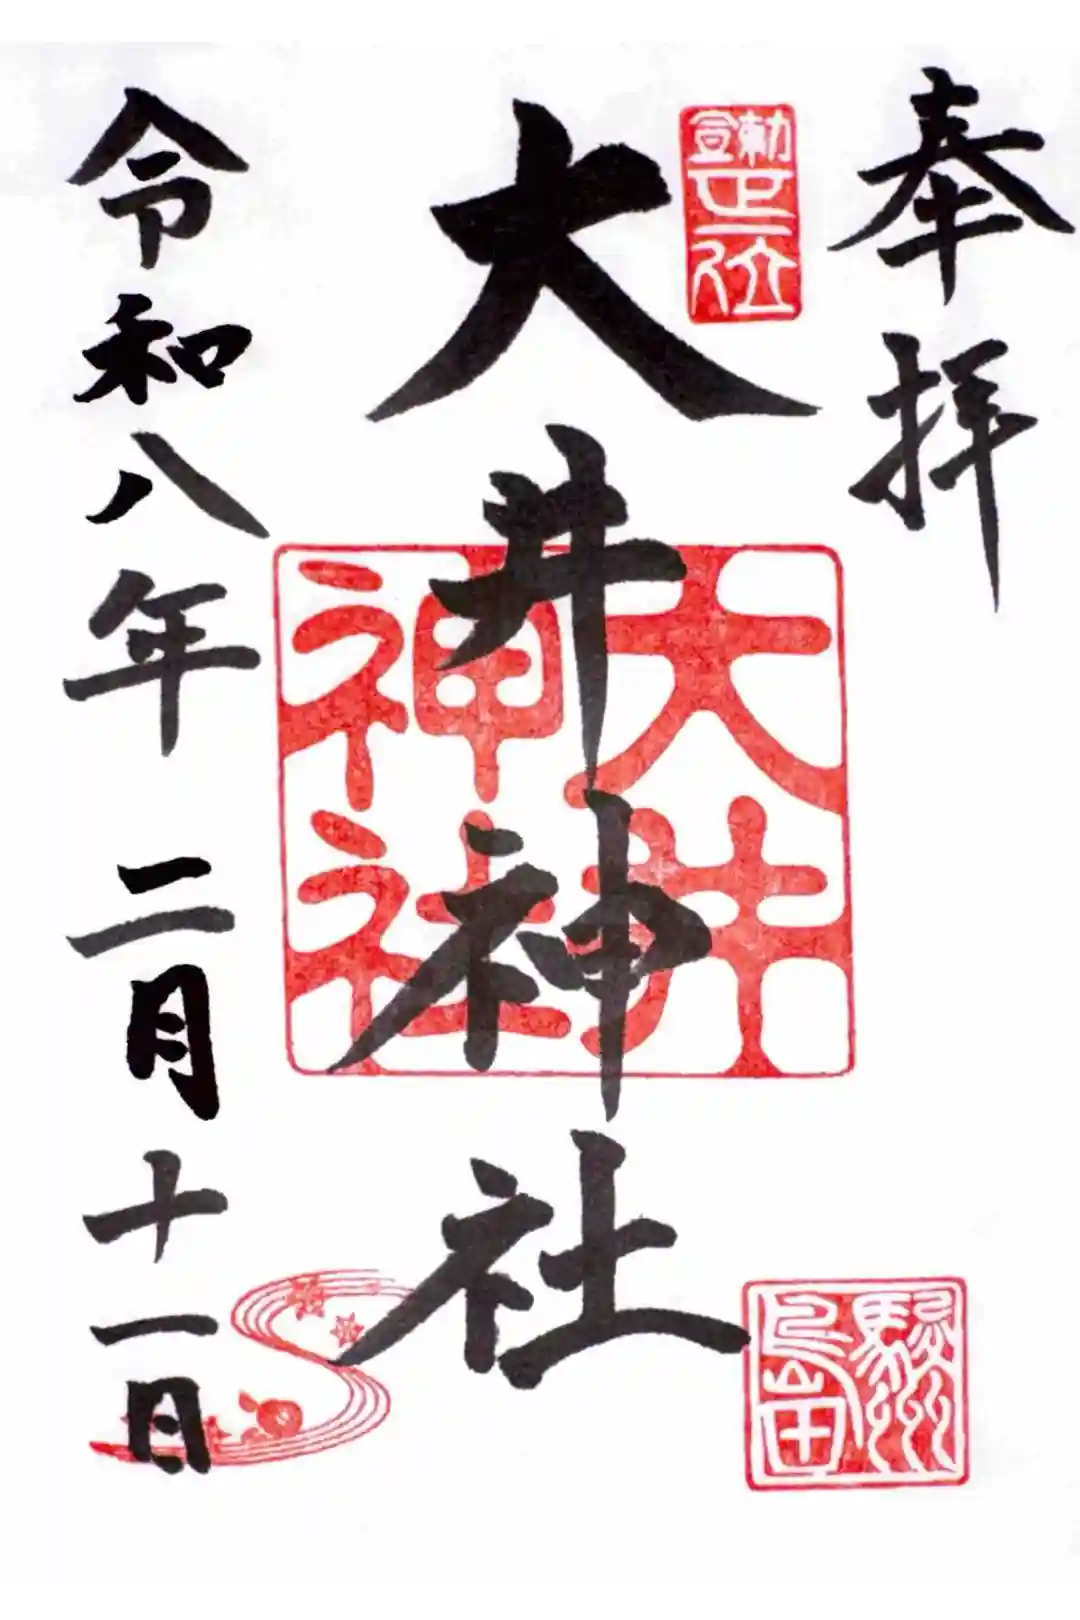 奉拝
勅宣
正一位
大井神社
大井
神社
駿州
島田
令和八年 二月十一日